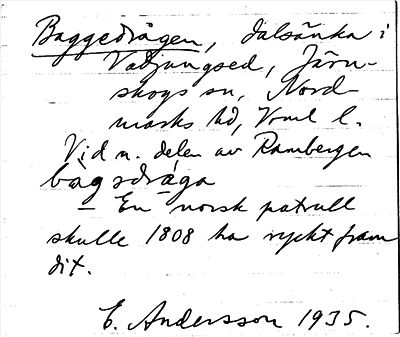 Baggedrågen, dalsänka i
Vadjungsed, Järn-
skogs sn, Nord-
marks hd, Vrml l.
Vid n. delen av Rambergen
bagsdråga
– En norsk patrull
skulle 1808 ha ryckt fram
dit.
E. Andersson 1935.